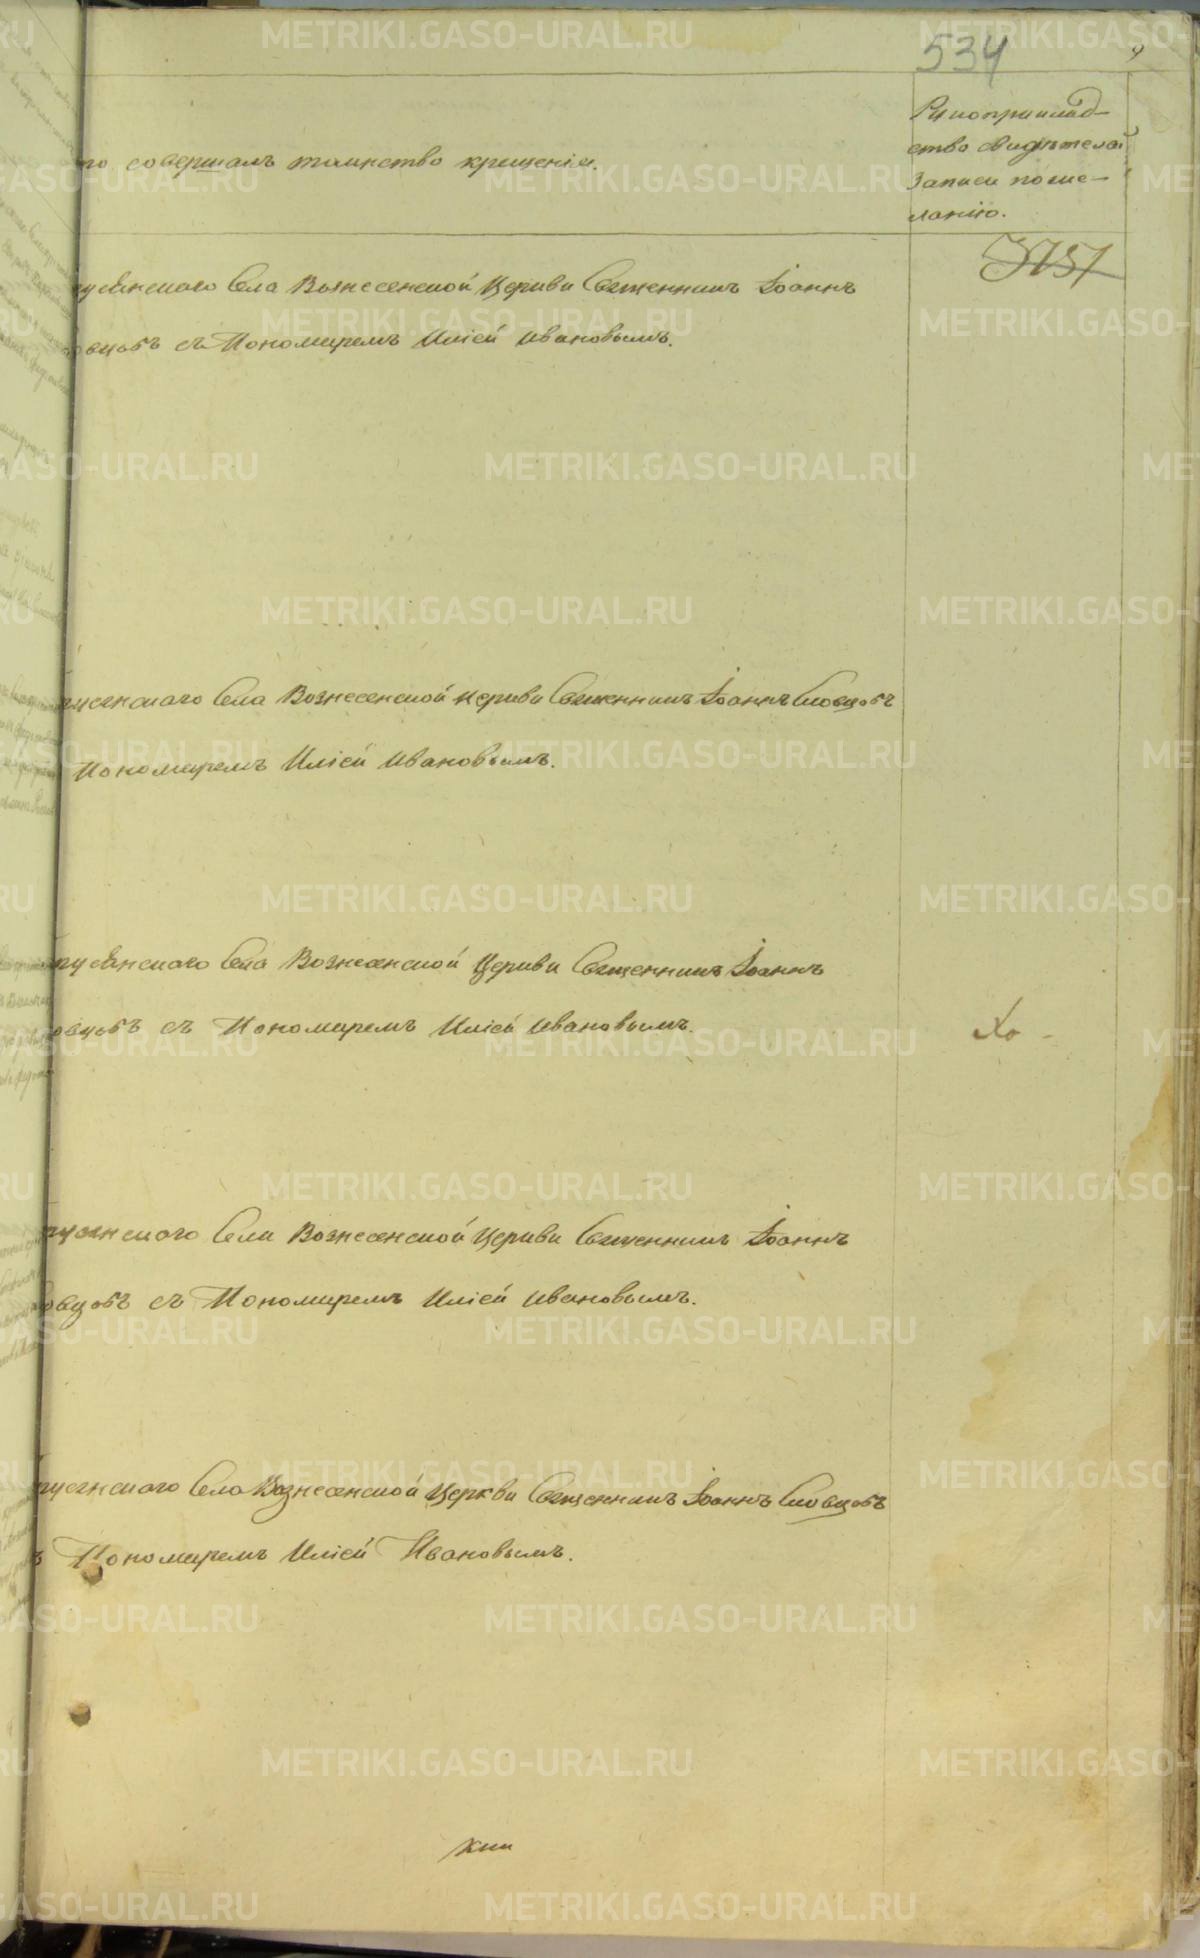 534
9
Рукоприклад-
ство свидѣтелей
записи по же-
ланію.
то совершалъ таинство крещенія.
3757
русянскаго Села Вознесенской Церкви Священникъ Іоаннъ
овцовъ съ Пономаремъ Иліей Ивановымъ.
русянскаго Села Вознесенской церкви Священникъ Іоаннъ Словцовъ
Пономаремъ Иліей Ивановымъ.
русянскаго Села Вознесенской Церкви Священникъ Іоаннъ
овцовъ съ Пономаремъ Иліей Ивановымъ.
русянскаго Села Вознесенской Церкви Священникъ Іоаннъ
овцовъ съ Пономаремъ Иліей Ивановымъ.
русянскаго Села Вознесенской Церкви Священникъ Іоаннъ Словцовъ
ъ Пономаремъ Иліей Ивановымъ.
METRIKI.GASO-URAL.RU